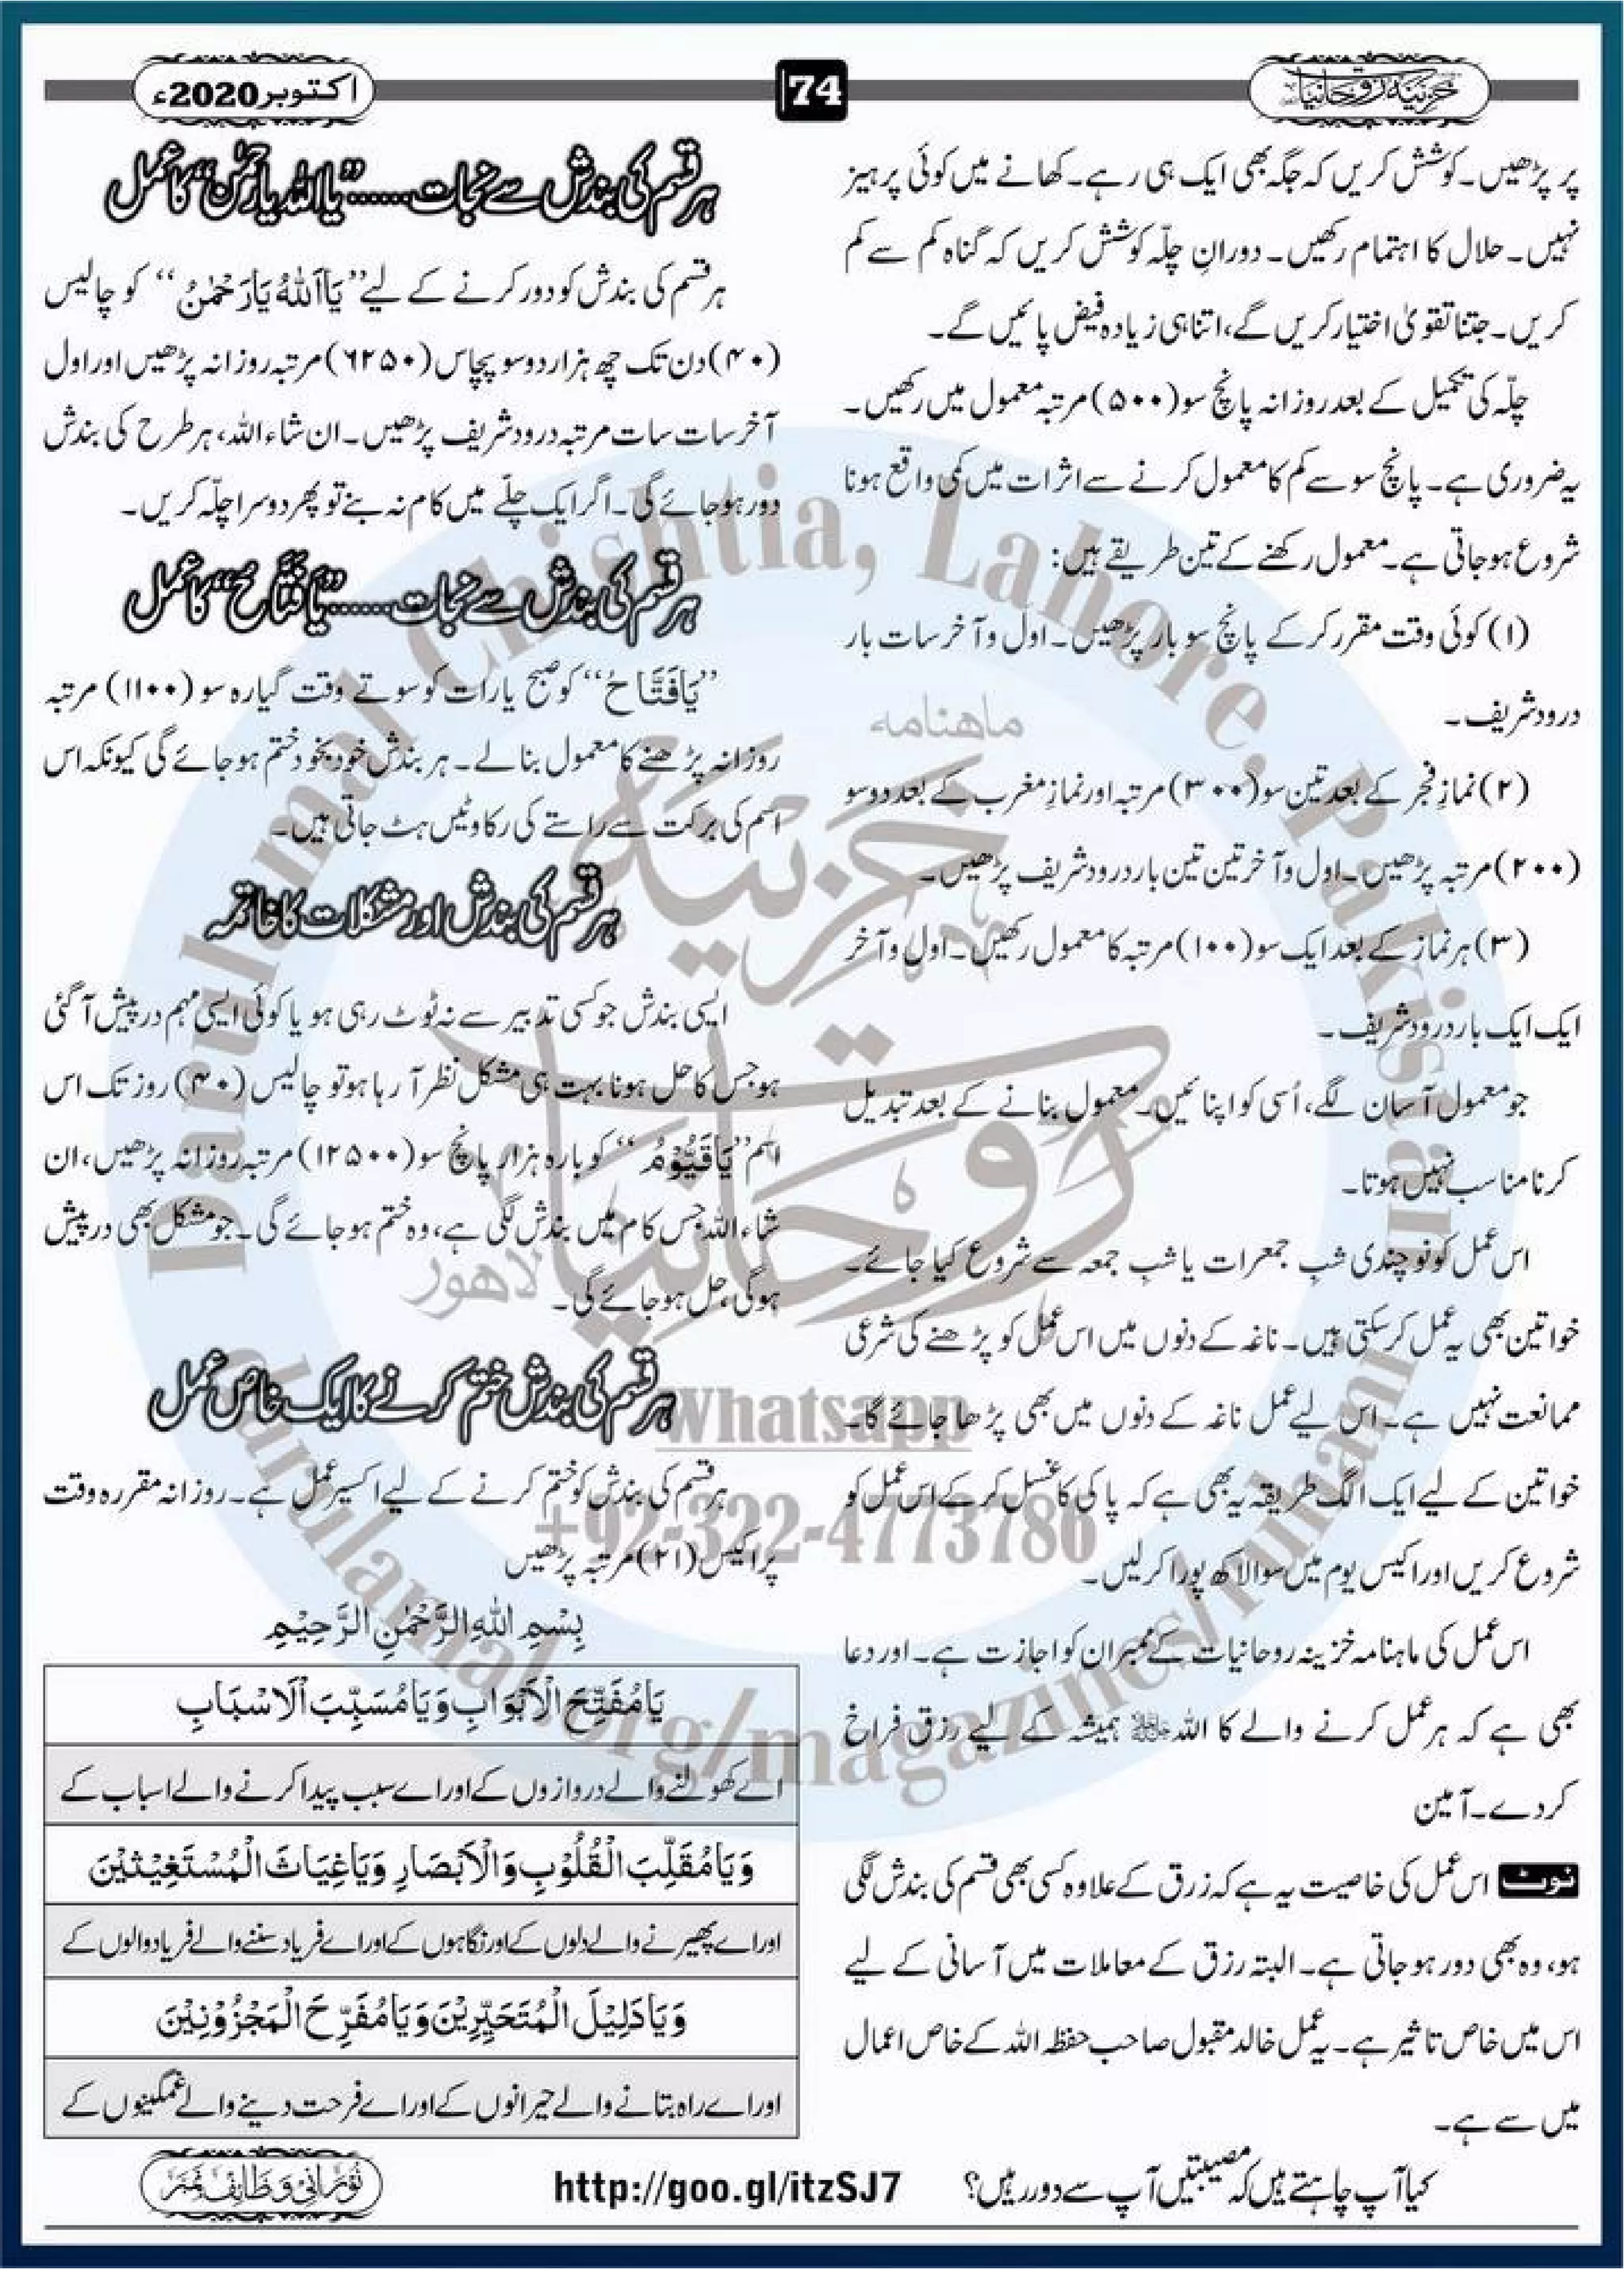 خزینۂ روحانیات
74
اکتوبر 2020ء
پر پڑھیں۔ کوشش کریں کہ جگہ بھی ایک ہی رہے۔ کھانے میں کوئی پرہیز
نہیں۔ حلال کا اہتمام رکھیں۔ دورانِ چلّہ کوشش کریں کہ گناہ کم سے کم
کریں۔ جتنا تقویٰ اختیار کریں گے، اتنا ہی زیادہ فیض پائیں گے۔
چلّہ کی تکمیل کے بعد روزانہ پانچ سو (۵۰۰) مرتبہ معمول میں رکھیں۔
یہ ضروری ہے۔ پانچ سو سے کم کا معمول کرنے سے اثرات میں کمی واقع ہونا
شروع ہو جاتی ہے۔ معمول رکھنے کے تین طریقے ہیں:
(۱) کوئی وقت مقرر کر کے پانچ سو بار پڑھیں۔ اول و آخر سات بار
درود شریف۔
(۲) نمازِ فجر کے بعد تین سو (۳۰۰) مرتبہ اور نمازِ مغرب کے بعد دو سو
(۲۰۰) مرتبہ پڑھیں۔ اول و آخر تین تین بار درود شریف پڑھیں۔
(۳) ہر نماز کے بعد ایک سو (۱۰۰) مرتبہ کا معمول رکھیں۔ اول و آخر
ایک ایک بار درود شریف۔
جو معمول آسان لگے، اُسی کو اپنائیں۔ معمول بنانے کے بعد تبدیل
کرنا مناسب نہیں ہوتا۔
اس عمل کو نو چندی شبِ جمعرات یا شبِ جمعہ سے شروع کیا جائے۔
خواتین بھی یہ عمل کر سکتی ہیں۔ ناغہ کے دنوں میں اس عمل کو پڑھنے کی شرعی
ممانعت نہیں ہے۔ اس لیے عمل ناغہ کے دنوں میں بھی پڑھا جائے گا۔
خواتین کے لیے ایک الگ طریقہ یہ بھی ہے کہ پاکی کا غسل کر کے اس عمل کو
شروع کریں اور اکیس یوم میں سوا لاکھ پورا کر لیں۔
اس عمل کی ماہنامہ خزینہ روحانیات کے ممبران کو اجازت ہے۔ اور دعا
بھی ہے کہ ہر عمل کرنے والے کا اللہ ﷻ ہمیشہ کے لیے رزق فراخ
کر دے۔ آمین
نوٹ اس عمل کی خاصیت یہ ہے کہ رزق کے علاوہ کسی بھی قسم کی بندش لگی
ہو، وہ بھی دور ہو جاتی ہے۔ البتہ رزق کے معاملات میں آسانی کے لیے
اس میں خاص تاثیر ہے۔ یہ عمل خالد مقبول صاحب حفظہ اللہ کے خاص اعمال
میں سے ہے۔
ہر قسم کی بندش سے نجات...... ”یا اللہ یا رحمٰن“ کا عمل
ہر قسم کی بندش کو دور کرنے کے لیے ”یَا اَللہُ یَا رَحْمٰنُ“ کو چالیس
(۴۰) دن تک چھ ہزار دو سو پچاس (۶۲۵۰) مرتبہ روزانہ پڑھیں اور اول
آخر سات سات مرتبہ درود شریف پڑھیں۔ ان شاء اللہ، ہر طرح کی بندش
دور ہو جائے گی۔ اگر ایک چلّے میں کام نہ بنے تو پھر دوسرا چلّہ کریں۔
ہر قسم کی بندش سے نجات...... ”یَا فَتَّاحُ“ کا عمل
”یَا فَتَّاحُ“ کو صبح یا رات کو سوتے وقت گیارہ سو (۱۱۰۰) مرتبہ
روزانہ پڑھنے کا معمول بنا لے۔ ہر بندش خود بخود ختم ہو جائے گی کیونکہ اس
اسم کی برکت سے راستے کی رکاوٹیں ہٹ جاتی ہیں۔
ہر قسم کی بندش اور مشکلات کا خاتمہ
ایسی بندش جو کسی تدبیر سے نہ ٹوٹ رہی ہو یا کوئی ایسی مہم درپیش آ گئی
ہو جس کا حل ہونا بہت ہی مشکل نظر آ رہا ہو تو چالیس (۴۰) روز تک اس
اسم ”یَا قَیُّوْمُ“ کو بارہ ہزار پانچ سو (۱۲۵۰۰) مرتبہ روزانہ پڑھیں، ان
شاء اللہ جس کام میں بندش لگی ہے، وہ ختم ہو جائے گی۔ جو مشکل بھی درپیش
ہو گی، حل ہو جائے گی۔
ہر قسم کی بندش ختم کرنے کا ایک خاص عمل
ہر قسم کی بندش کو ختم کرنے کے لیے اکسیر عمل ہے۔ روزانہ مقررہ وقت
پر اکیس (۲۱) مرتبہ پڑھیں
بِسْمِ اللهِ الرَّحْمٰنِ الرَّحِیْمِ
یَا مُفَتِّحَ الْاَبْوَابِ وَیَا مُسَبِّبَ الْاَسْبَابِ
اے کھولنے والے دروازوں کے اور اے سبب پیدا کرنے والے اسباب کے
وَیَا مُقَلِّبَ الْقُلُوْبِ وَالْاَبْصَارِ وَیَا غِیَاثَ الْمُسْتَغِیْثِیْنَ
اور اے پھیرنے والے دلوں کے اور نگاہوں کے اور اے فریاد سننے والے فریاد والوں کے
وَیَا دَلِیْلَ الْمُتَحَیِّرِیْنَ وَیَا مُفَرِّحَ الْمَحْزُوْنِیْنَ
اور اے راہ بتانے والے حیرانوں کے اور اے فرحت دینے والے غمگینوں کے
کیا آپ چاہتے ہیں کہ مصیبتیں آپ سے دور رہیں؟ http://goo.gl/itzSJ7
نورانی وظائف نمبر
Darul amal Chishtia, Lahore, Pakistan
ماهنامه
خزینۂ روحانیات
لاهور
Whatsapp
+92-322-4773786
darulamal.org/magazines/ruhani